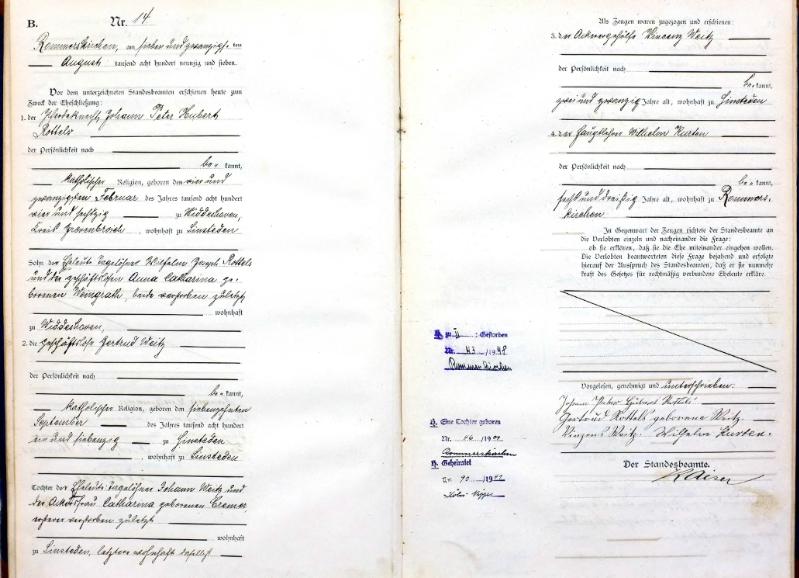 B. Nr. 14
Rommerskirchen, am sieben und zwanzigsten
August tausend acht hundert neunzig und sieben.
Vor dem unterzeichneten Standesbeamten erschienen heute zum
Zweck der Eheschließung:
1. der Johann Peter Hubert
Rottels
der Persönlichkeit nach
be kannt,
katholischer Religion, geboren den vier und
zwanzigsten Februar des Jahres tausend acht hundert
vier und sechzig zu Widdeshoven,
Kreis Grevenbroich, wohnhaft zu Sinsteden
Sohn der Eheleute Tagelöhner Wilhelm Joseph Rottels
und der geschäftslosen Anna Catharina ge-
borenen, beide verstorben zuletzt
wohnhaft
zu Widdeshoven,
2. die geschäftslose Gertrud Weitz
der Persönlichkeit nach
be kannt,
katholischer Religion, geboren den siebenzehnten
September des Jahres tausend acht hundert
vier und siebenzig zu Sinsteden
, wohnhaft zu Sinsteden
Tochter der Eheleute Tagelöhner Johann Weitz und
der Catharina geborenen Cremer
ersterer verstorben zuletzt
wohnhaft
zu Sinsteden, letztere wohnhaft daselbst
Als Zeugen waren zugezogen und erschienen:
3. der Ackergehülfe Vincenz Weitz
der Persönlichkeit nach
be kannt,
zwei und zwanzig Jahre alt, wohnhaft zu Sinsteden
4. der Wilhelm Kurten
der Persönlichkeit nach
be kannt,
sechs und dreißig Jahre alt, wohnhaft zu Rommers-
kirchen
In Gegenwart der Zeugen richtete der Standesbeamte an
die Verlobten einzeln und nacheinander die Frage:
ob sie erklären, daß sie die Ehe miteinander eingehen wollen.
Die Verlobten beantworteten diese Frage bejahend und erfolgte
hierauf der Ausspruch des Standesbeamten, daß er sie nunmehr
kraft des Gesetzes für rechtmäßig verbundene Eheleute erkläre.
Vorgelesen, genehmigt und unterschrieben:
Johann Peter Hubert Rottels
Gertrud Rottels geborene Weitz.
Vinzenz Weitz. Wilhelm Kurten.
Der Standesbeamte.
Kaiser
zu II : Gestorben
Nr. 43 /1948
Rommerskirchen
Eine Tochter geboren
Nr.
Rommerskirchen
Geheiratet
Nr. 90